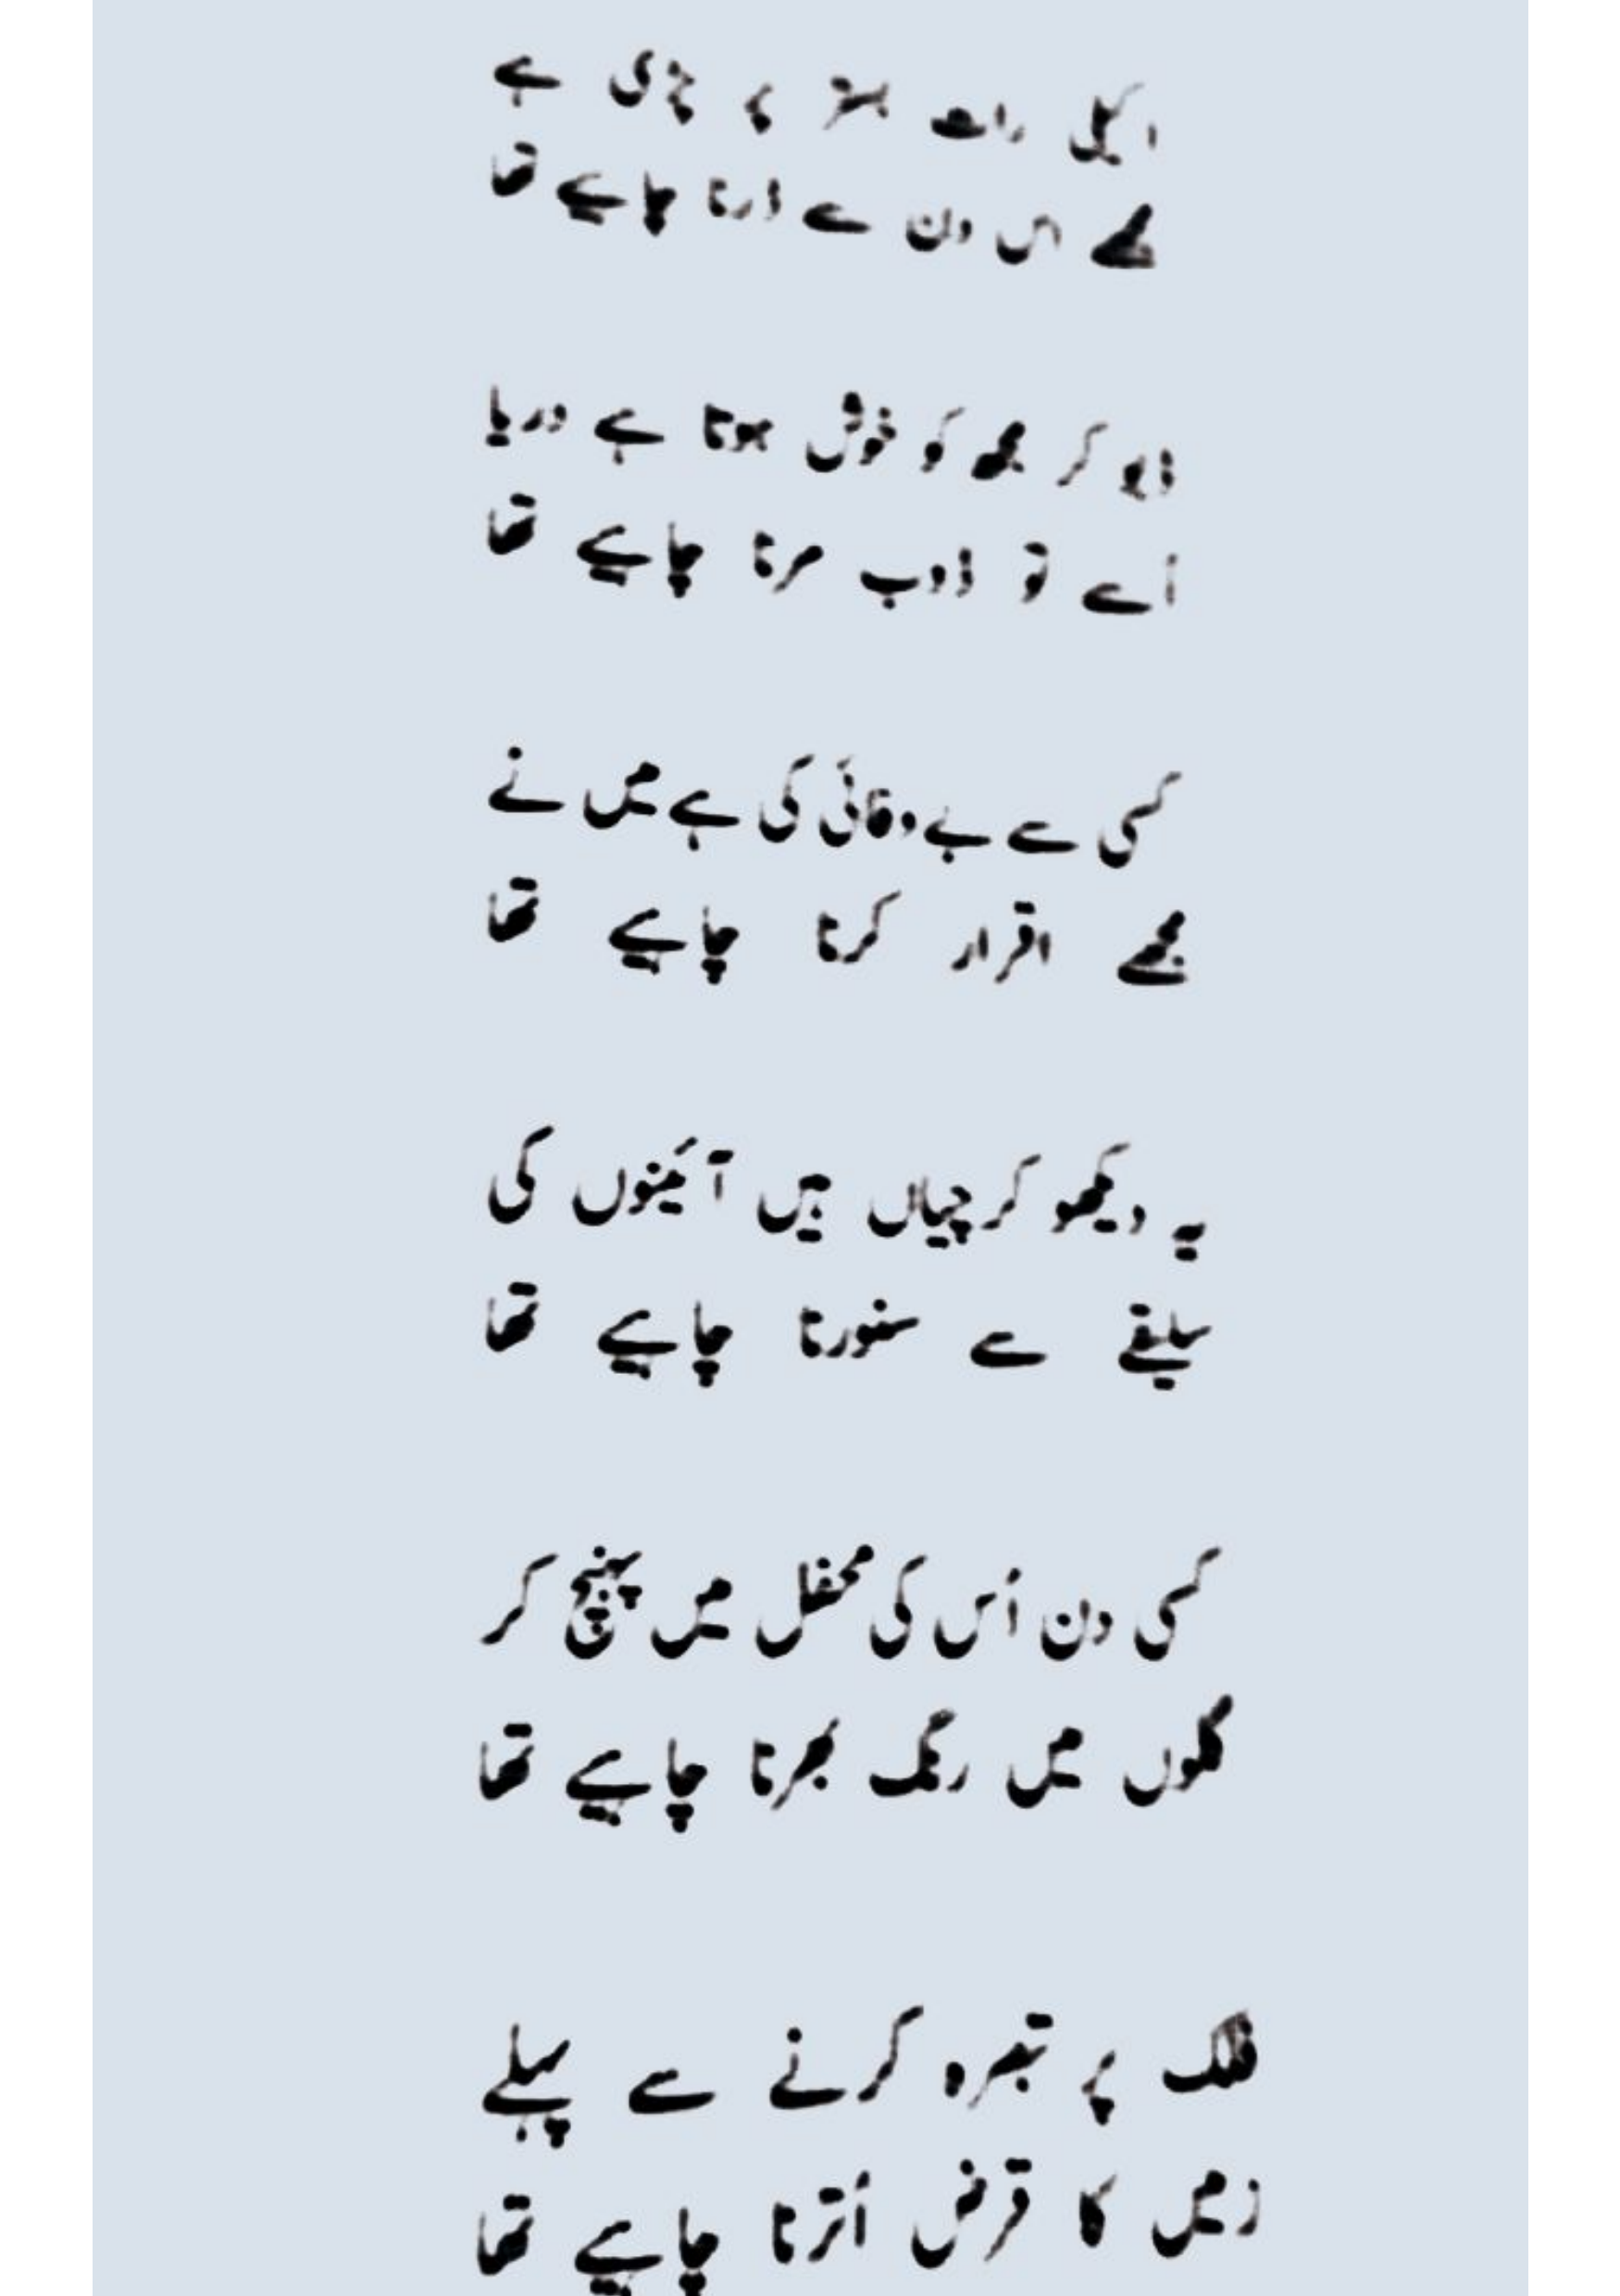 اکیلی رات بستر پر پڑی ہے
مجھے اس دن سے ڈرنا چاہیے تھا
ڈبو کر مجھ کو خوش ہوتا ہے دریا
اُسے تو ڈوب مرنا چاہیے تھا
کسی سے بے وفائی کی ہے میں نے
مجھے اقرار کرنا چاہیے تھا
یہ دیکھو کرچیاں ہیں آئینوں کی
سلیقے سے سنورنا چاہیے تھا
کسی دن اُس کی محفل میں پہنچ کر
گلوں میں رنگ بھرنا چاہیے تھا
فلک پر تبصرہ کرنے سے پہلے
زمیں کا قرض اُترنا چاہیے تھا